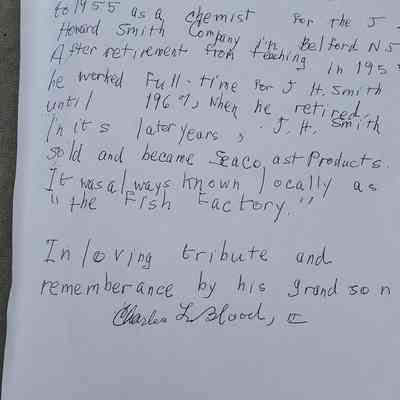 to 1955 as a chemist for the J
Howard Smith Company in Belford NJ
After retirement from teaching in 195
he worked full-time for J H. Smith
until 196 , when he retired,
In it's later years, J. H. Smith
sold and became Seaco ast Products.
It was always known locally as
" the Fish Factory."
In loving tribute and
rememberance by his grand son
Charles L Blood, II